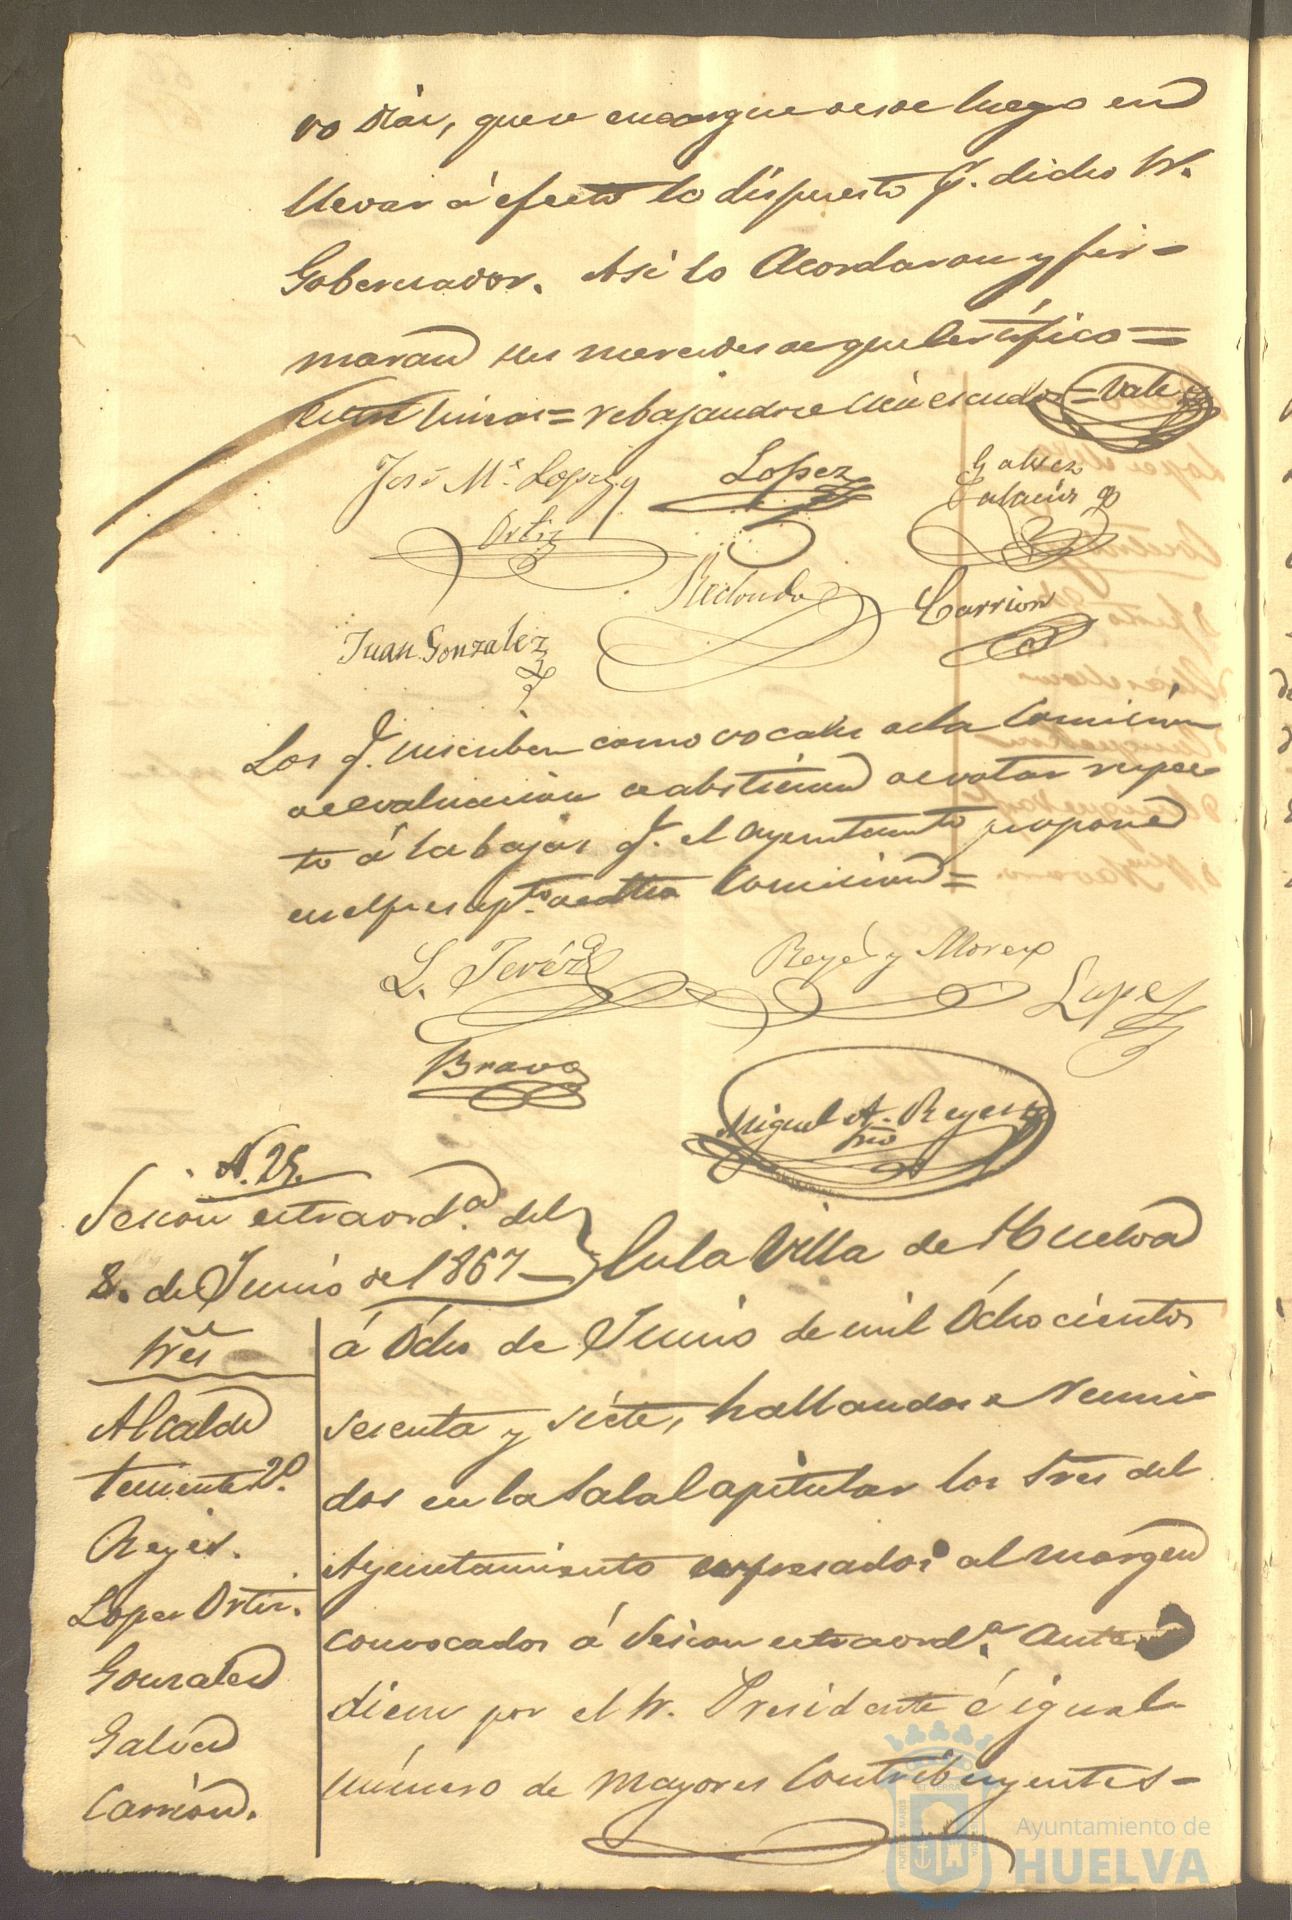 vo Diaz, que se encargue desde luego en
llevar á efecto lo dispuesto pr. dicho Sr.
Gobernador. Asi lo Acordaron y fir=
maron sus mercedes de que Certifico=
lineas= rebajandose cien escudos =Vale
José Ma. Lopez y Ortiz
Lopez
Galvez Palacios
Redondo
Carrion
Juan Gonzalez
Los q. suscriben como vocales de la Comision
de evaluacion se abstienen de votar respec
to á la bajas q. el Ayuntamiento propone
en el presupto. de dha Comision=
L. Jeréz
Reyes y Moreno
Lopez
Bravo
Miguel A. Reyes
Srio
N. 25.
Sesion extraorda. del
8. de Junio de 1867
Sres
Alcalde
teniente 2o.
Reyes.
Lopez Ortiz.
Gonzalez
Galvez
Carrion.
En la Villa de Huelva
á Ocho de Junio de mil Ochocientos
sesenta y siete, hallandose Reuni-
dos en la Sala Capitular los Sres del
Ayuntamiento expresados al margen
convocados á Sesion extraorda. Ante
diem por el Sr. Presidente é igual
número de mayores Contribuyentes=
Ayuntamiento de
HUELVA